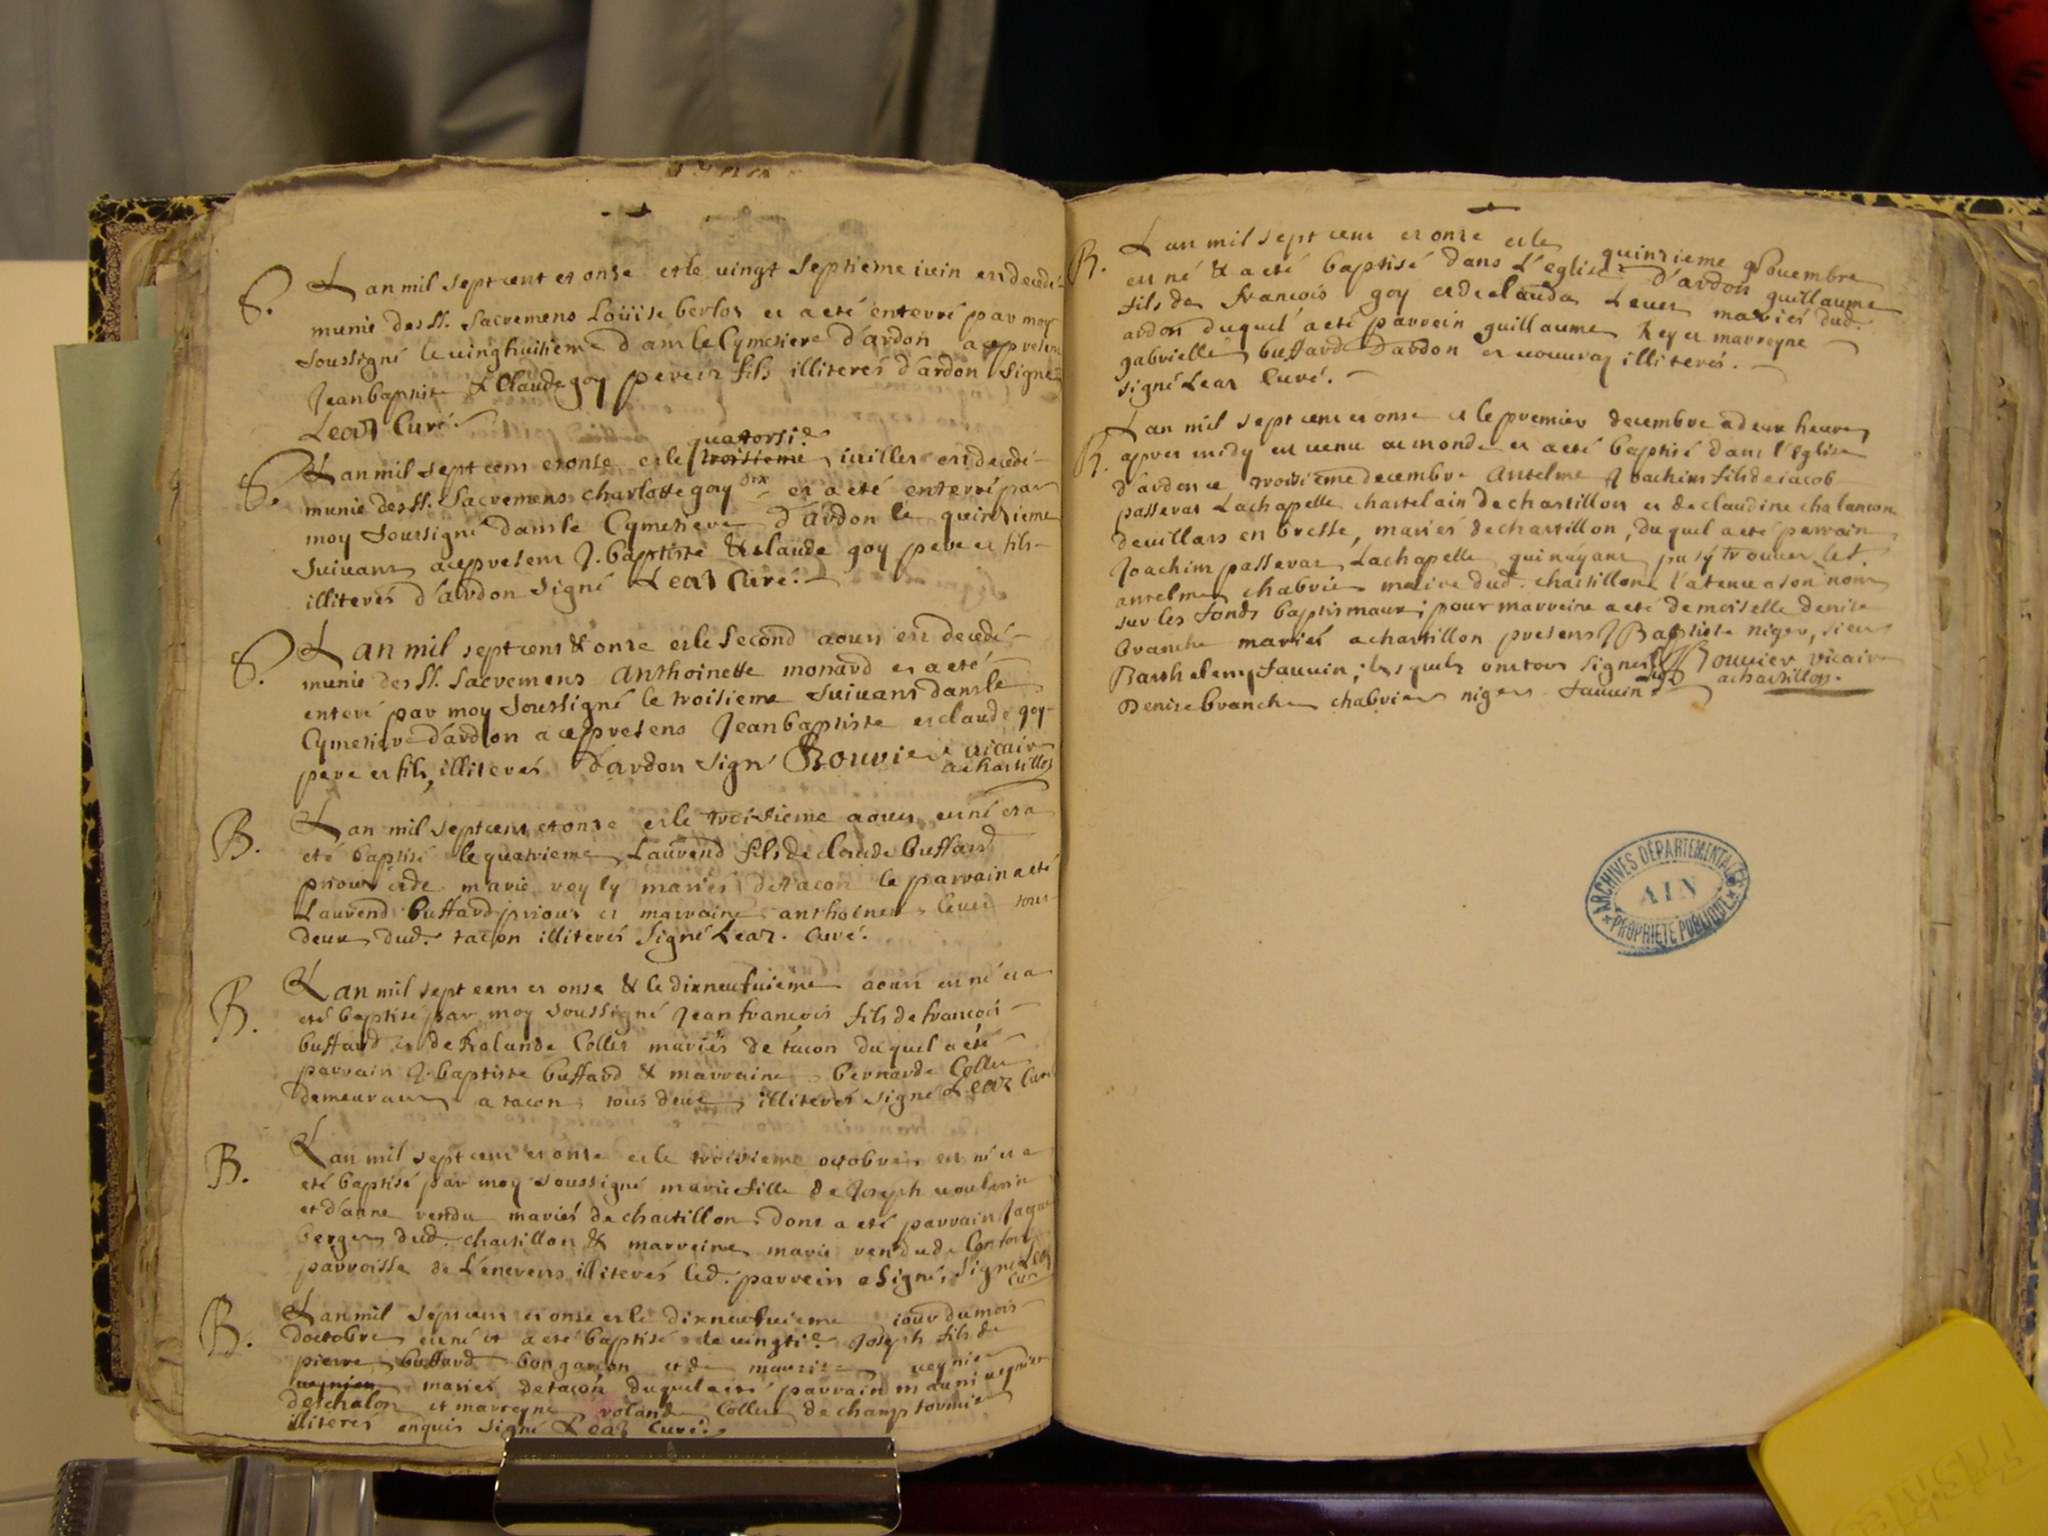 S. Lan mil sept cent et onze et le vingt Septieme iuin est decedé
munie des SS. Sacremens Loüise berlos et a eté enterré par moy
soussigné le vinghuitieme dans le Cymetiere d'ardon a ce presens
Jean baptiste & Claude goy pere et fils illiterés d'ardon Signé
Lear Curé.
quatorsi.e
S. Lan mil sept cens et onse et le troisieme iuillet est decedé
munie des SS. Sacremens charlotte goy et a eté enterré par
moy soussigné dans le Cymetiere d'ardon le quinzieme
suivant a ce presens J. baptiste & claude goy pere et fils
illiterés d'ardon signé Lear Curé.
S. Lan mil sept cens & onze et le Second aoust est decedé
munie des SS. Sacremens Anthoinette monard et a eté
enteré par moy Soussigné le troisieme Suivant dans le
Cymetiere d'ardon a ce presens Jean baptiste et claude goy
pere et fils, illiterés d'ardon Signé Rouvier vicaire
a chastillon
B. Lan mil sept cens et onze et le troisieme aoust est né et a
eté baptisé le quatrieme Laurend fils de claude buffard
priour et de marie reyly mariés de tacon le parrain a eté
Laurend buffard priour et marraine anthoinet levet tous
deux dud. tacon illiterés Signé Lear. Curé.
B. Lan mil sept cens et onze & le dixneufuieme aoust est né et a
eté baptisé par moy soussigné Jean francois fils de francois
buffard et de Rolande Collet mariés de tacon duquel a eté
parrain J. baptiste buffard & marraine bernarde Collet
demeurant a tacon tous deux illiterés signé Lear Curé
B. Lan mil sept cens et onze et le troisieme octobre est né et a
eté baptisé par moy soussigné marie fille de Joseph
et d'anne vendu mariés de chastillon dont a eté parrain Jaque
berger dud. chastillon & marreine marie vendu de
parroisse de L'enevens illiterés led. parrein a Signé, Signé Lear
Curé
B. Lan mil sept cens et onze et le dixneufuieme iour du mois
doctobre est né et a eté baptisé le vingti.e Joseph fils de
pierre buffard bon garcon et de maurise veynie
mariés de tacon duquel a eté parrain
deschalon et marreyne rolande Collet de champ fournier
illiterés enquis signé Lear Curé.
B. Lan mil sept cens et onze et le quinzieme Novembre
est né & a eté baptisé dans L'eglise d'ardon guillaume
fils de francois goy et de claude Levet mariés dud.
ardon duquel a eté parrein guillaume Rey et marreyne
gabrielle buffard d'ardon et vouvray illiterés.
signé Lear Curé.
B. Lan mil sept cens et onze et le premier decembre a deux heures
apres midy est venu au monde et a eté baptisé dans l'Eglise
d'ardon le troisieme decembre Antelme Joachim fils de iacob
passerat Lachapelle chastelain de chastillon et de claudine chalancon
de villars en bresse, mariés de chastillon, duquel a eté parrain
Joachim passerat Lachapelle qui n'ayant pu s'y trouver le S.
antelme chabrier maire dud. chastillon l'a tenu a son nom
sur les fonds baptismaux; pour marreine a eté demoiselle denise
branche mariés a chastillon presens J Baptiste niger, sieur
Barthelemy Jauvin; lesquels ont tous signés Rouvier vicaire
a chastillon.
Denise branche chabrier niger Jauvin
ARCHIVES DÉPARTEMENTALES
AIN
PROPRIÉTÉ PUBLIQUE